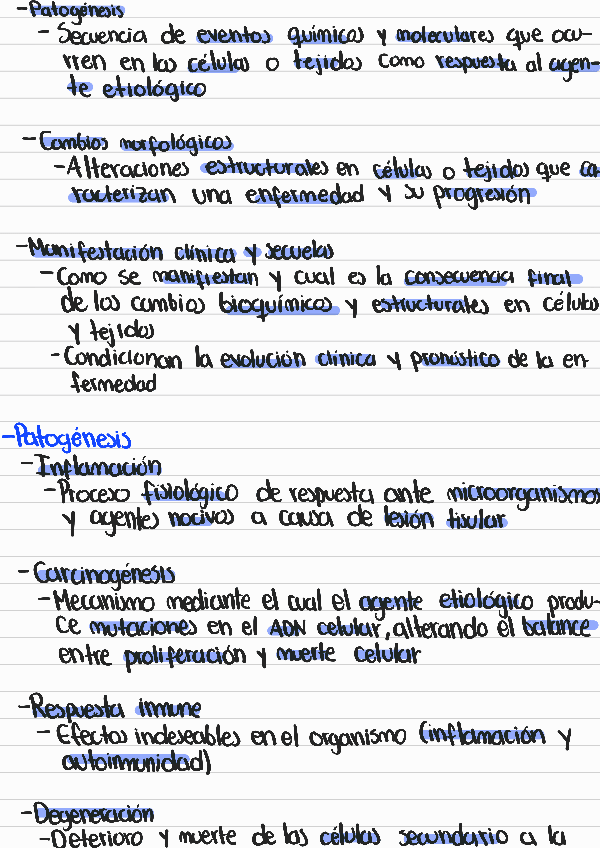 -Patogénesis
- Secuencia de eventos químicos y moleculares que ocu-
rren en las células o tejidos como respuesta al agen-
te etiológico
-Cambios morfológicos
-Alteraciones estructurales en células o tejidos que ca-
racterizan una enfermedad y su progresión
-Manifestación clínica y secuelas
-Como se manifiestan y cual es la consecuencia final
de los cambios bioquímicos y estructurales en células
y tejidos
-Condicionan la evolución clínica y pronóstico de la en-
fermedad
-Patogénesis
-Inflamación
-Proceso fisiológico de respuesta ante microorganismos
y agentes nocivos a causa de lesión tisular
-Carcinogénesis
-Mecanismo mediante el cual el agente etiológico produ-
ce mutaciones en el ADN celular, alterando el balance
entre proliferación y muerte celular
-Respuesta inmune
- Efectos indeseables en el organismo (inflamación y
autoinmunidad)
-Degeneración
-Deterioro y muerte de las células secundario a la